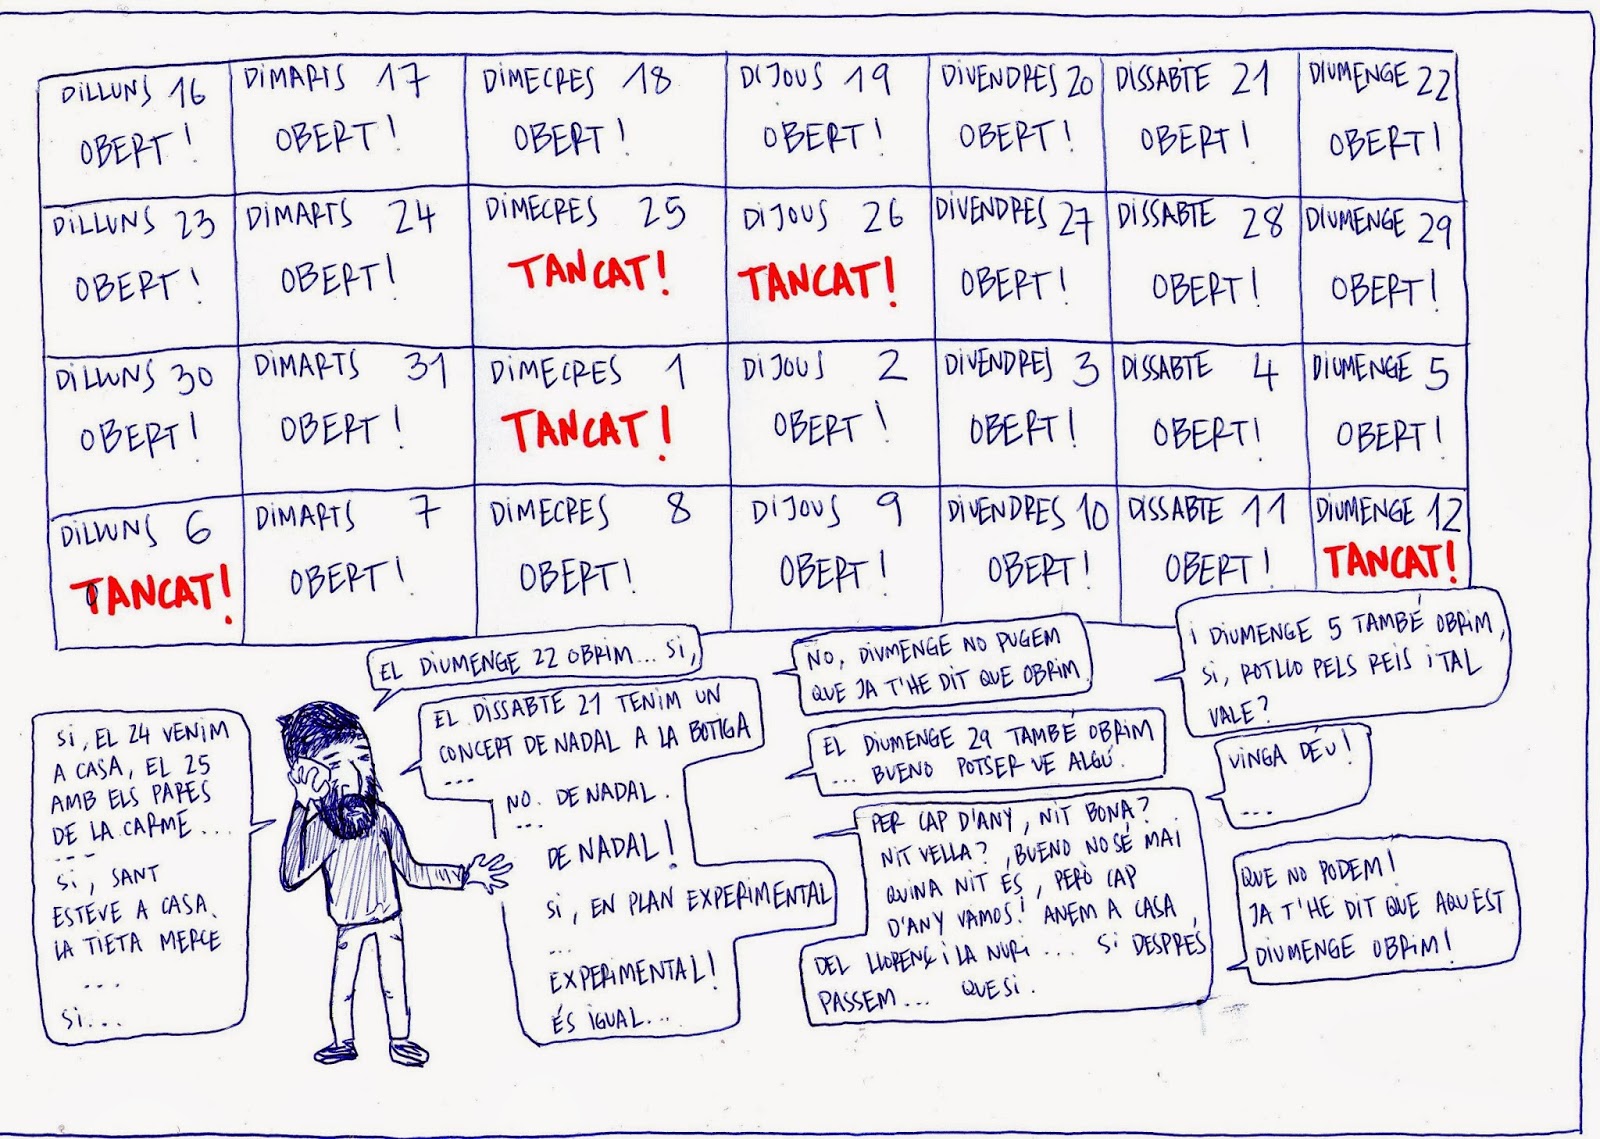 DILLUNS 16
OBERT!
DIMARTS 17
OBERT!
DIMECRES 18
OBERT!
DIJOUS 19
OBERT!
DIVENDRES 20
OBERT!
DISSABTE 21
OBERT!
DIUMENGE 22
OBERT!
DILLUNS 23
OBERT!
DIMARTS 24
OBERT!
DIMECRES 25
TANCAT!
DIJOUS 26
TANCAT!
DIVENDRES 27
OBERT!
DISSABTE 28
OBERT!
DIUMENGE 29
OBERT!
DILLUNS 30
OBERT!
DIMARTS 31
OBERT!
DIMECRES 1
TANCAT!
DIJOUS 2
OBERT!
DIVENDRES 3
OBERT!
DISSABTE 4
OBERT!
DIUMENGE 5
OBERT!
DILLUNS 6
TANCAT!
DIMARTS 7
OBERT!
DIMECRES 8
OBERT!
DIJOUS 9
OBERT!
DIVENDRES 10
OBERT!
DISSABTE 11
OBERT!
DIUMENGE 12
TANCAT!
SI, EL 24 VENIM
A CASA, EL 25
AMB ELS PARES
DE LA CARME...
---
SI, SANT
ESTEVE A CASA.
LA TIETA MERCE
...
SI...
EL DIUMENGE 22 OBRIM... SI,
EL DISSABTE 21 TENIM UN
CONCERT DE NADAL A LA BOTIGA
...
NO. DE NADAL.
...
DE NADAL!
SI, EN PLAN EXPERIMENTAL
...
EXPERIMENTAL!
ÉS IGUAL...
NO, DIUMENGE NO PUGEM
QUE JA T'HE DIT QUE OBRIM
EL DIUMENGE 29 TAMBÉ OBRIM
... BUENO POTSER VE ALGÚ.
PER CAP D'ANY, NIT BONA?
NIT VELLA?, BUENO NO SÉ MAI
QUINA NIT ÉS, PERÒ CAP
D'ANY VAMOS! ANEM A CASA,
DEL LLORENÇ I LA NURI... SI DESPRÉS
PASSEM... QUE SI.
I DIUMENGE 5 TAMBÉ OBRIM,
SI, ROTLLO PELS REIS I TAL
VALE?
VINGA DÉU!
...
QUE NO PODEM!
JA T'HE DIT QUE AQUEST
DIUMENGE OBRIM!